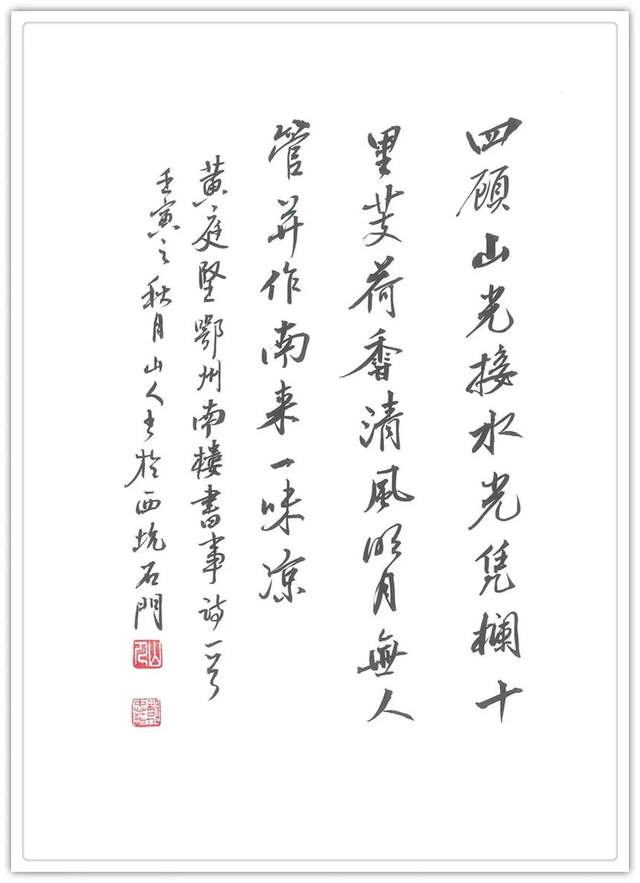 四顾山光接水光凭欄十
里芰荷香清風明月無人
管并作南来一味凉
黄庭坚鄂州南樓書事诗一首
壬寅之秋月山人书於西坑石門